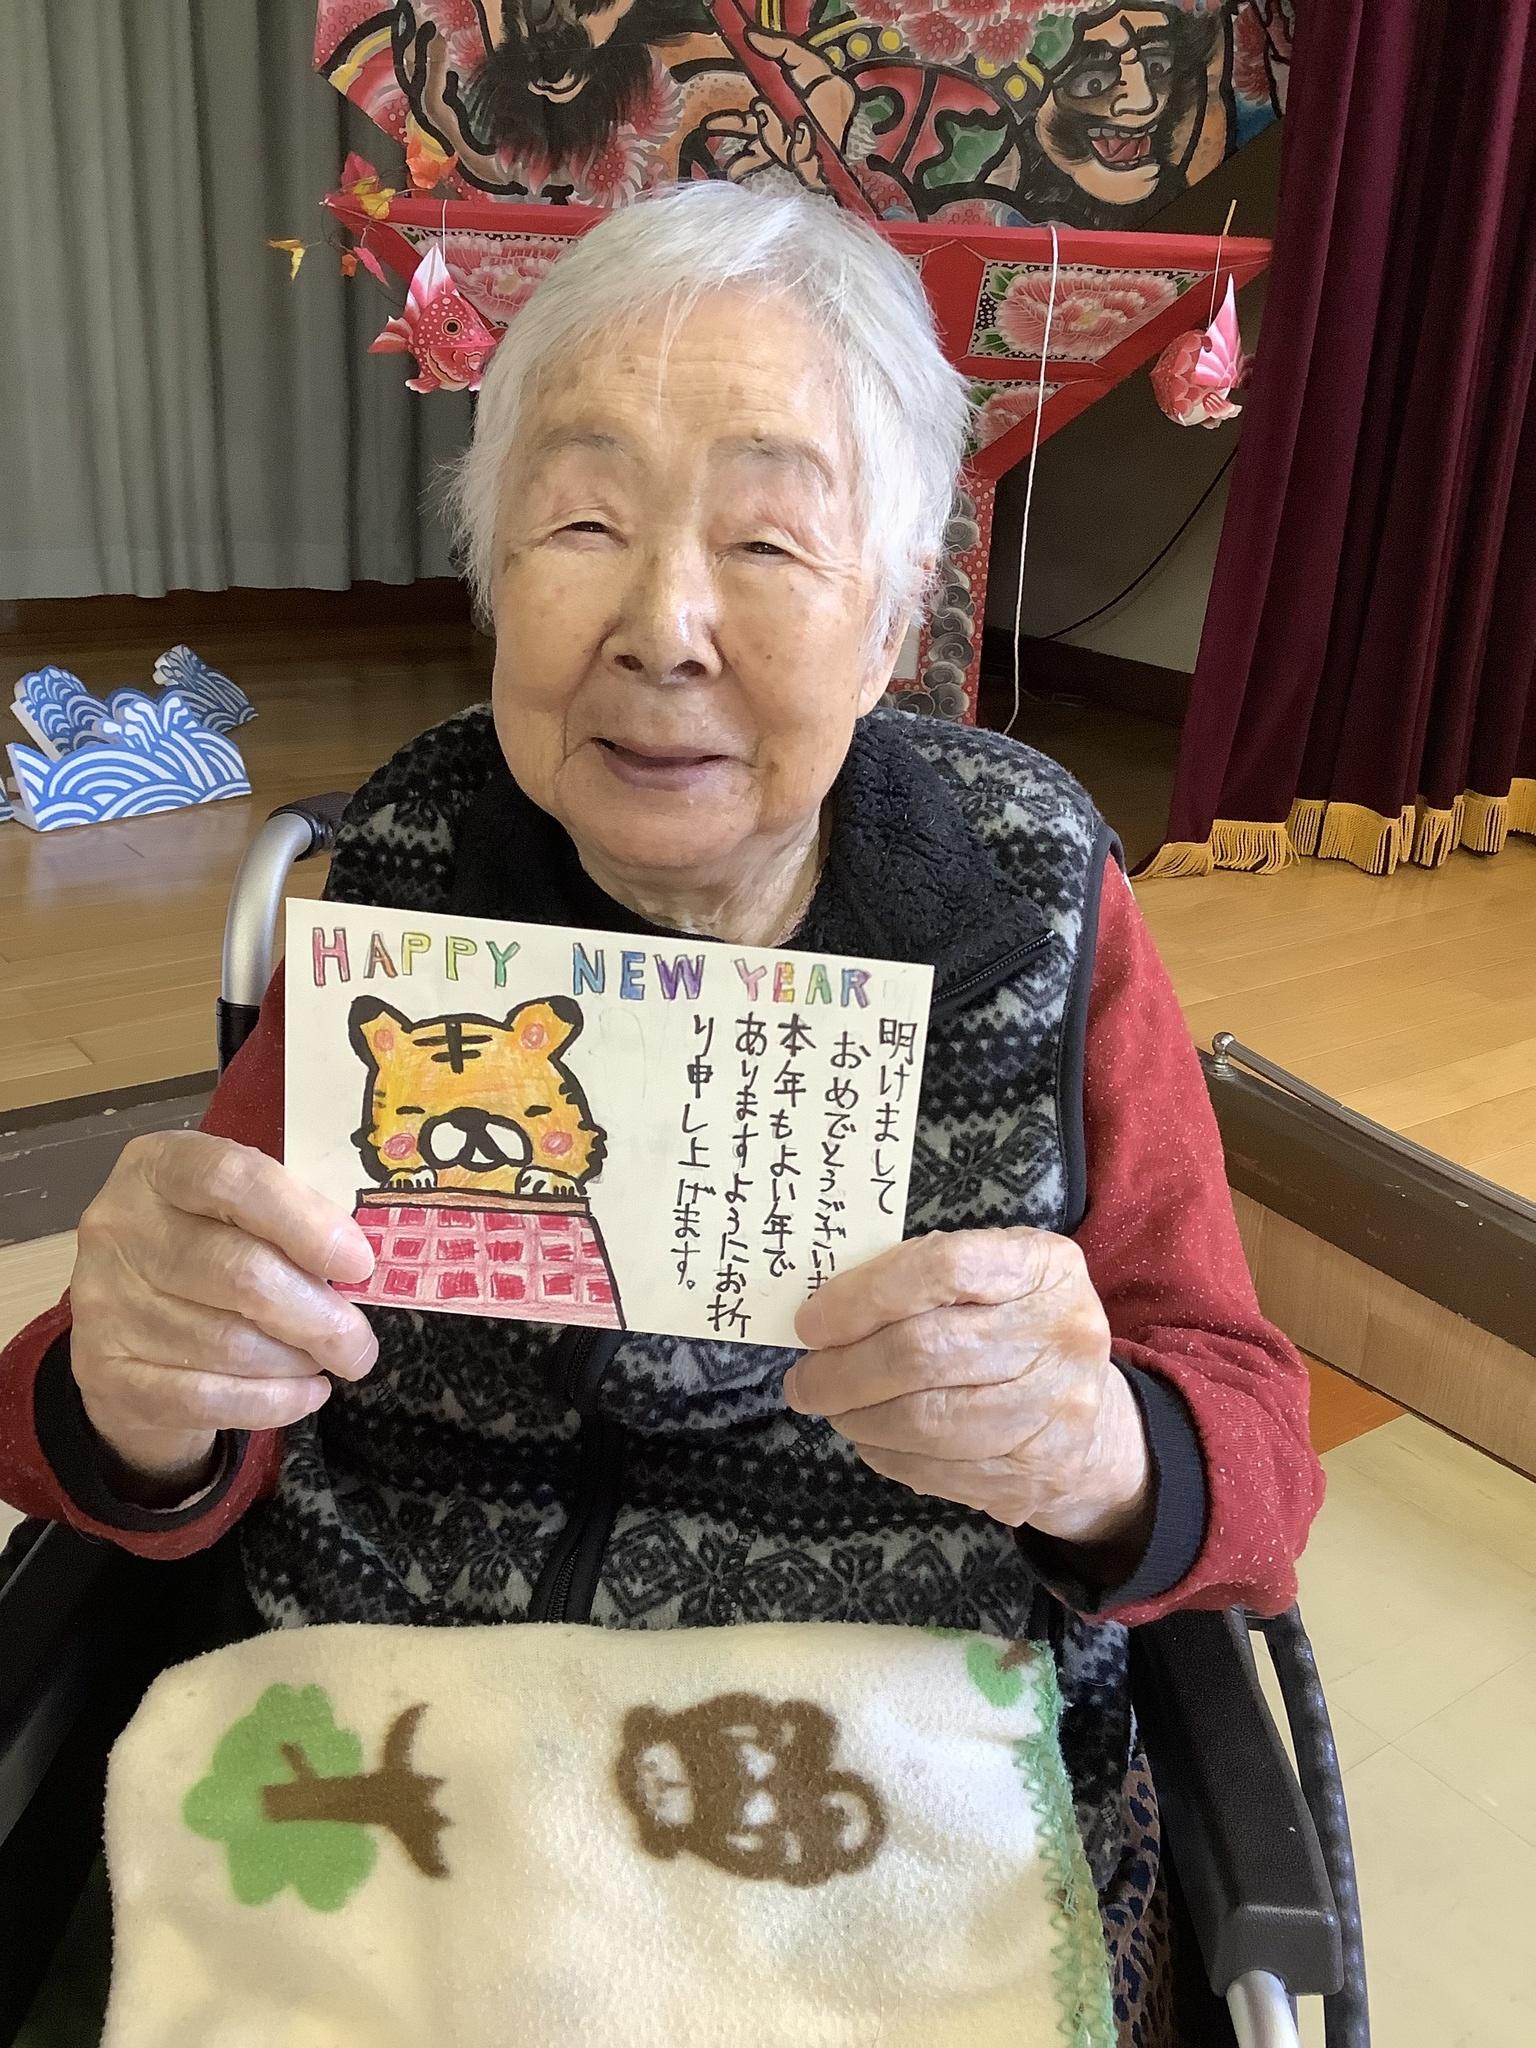 HAPPY NEW YEAR
明けまして
おめでとうございま
本年もよい年で
ありますようにお祈
り申し上げます。